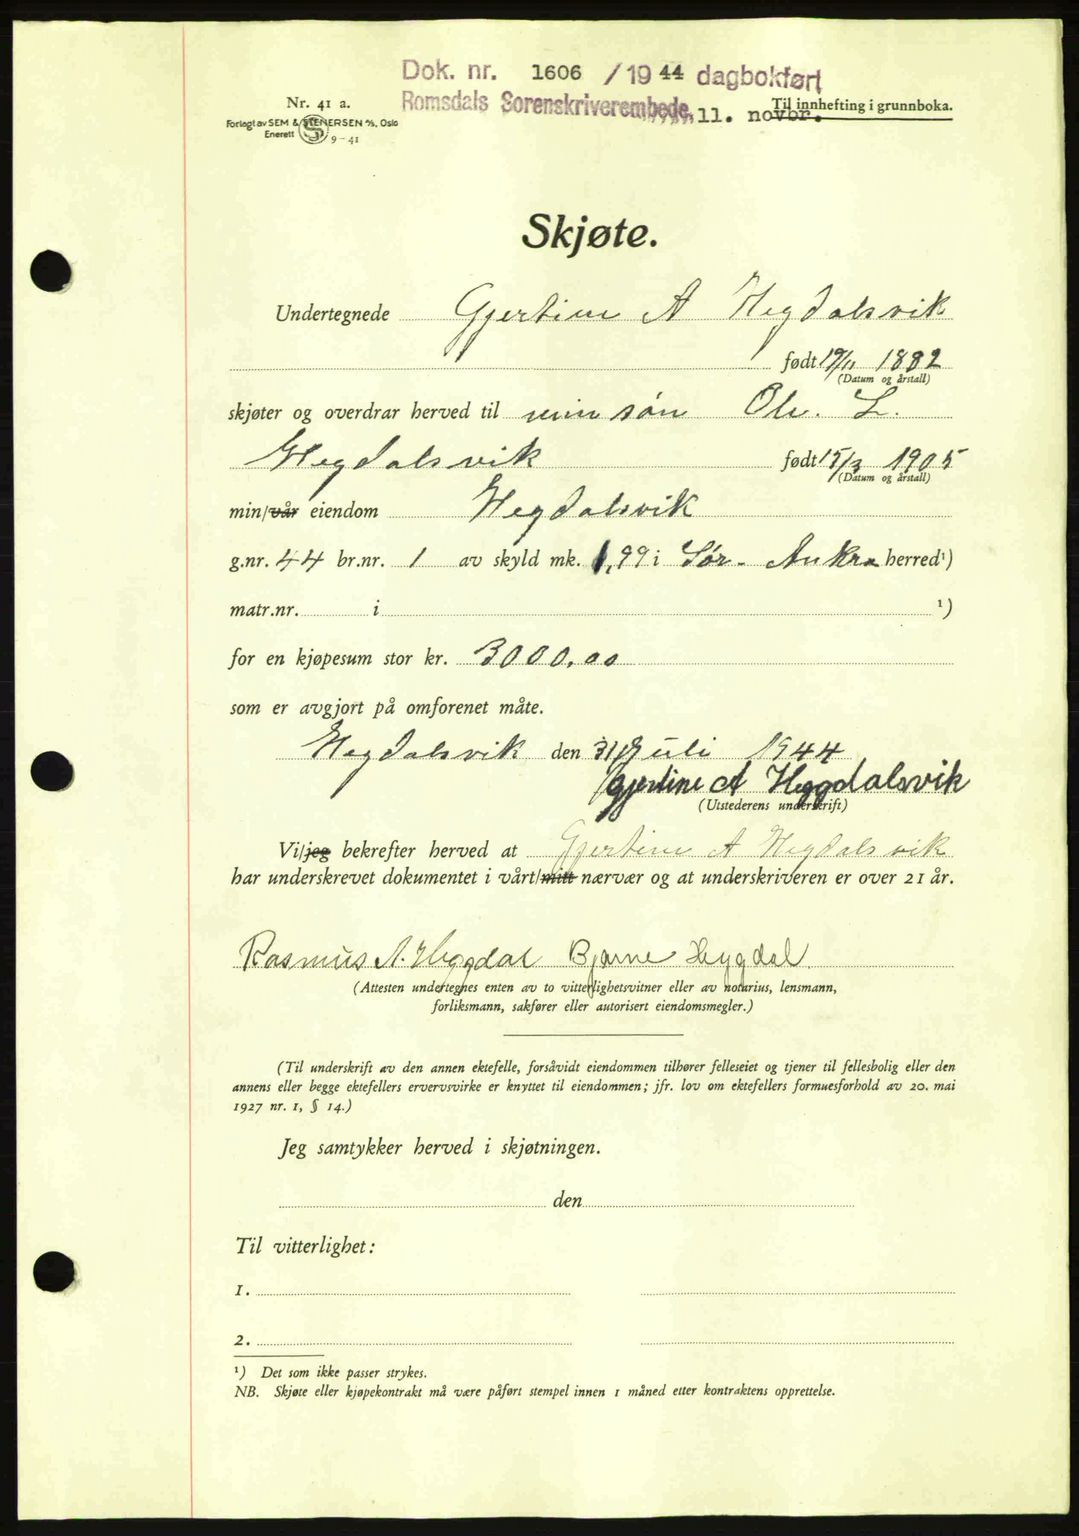 Dok. nr. 1606 / 1944 dagbokført
Romsdals Sorenskriverembede, 11. novbr.
Til innhefting i grunnboka.
Nr. 41 a.
Forlagt av SEM & STENERSEN A/S, Oslo
Enerett S 9-41
Skjøte.
Undertegnede Gjertine A Hegdalsvik
født 19/11 1882
(Datum og årstall)
skjøter og overdrar herved til min søn Ole. L.
Hegdalsvik født 15/3 1905
(Datum og årstall)
min/vår eiendom Hegdalsvik
g.nr. 44 br.nr. 1 av skyld mk. 1,99 i Sør-Aukra herred¹)
matr.nr. i ¹)
for en kjøpesum stor kr. 3000,00
som er avgjort på omforenet måte.
Hegdalsvik den 31/ Juli 1944
Gjertine A Heggdalsvik
(Utstederens underskrift)
Vi/jeg bekrefter herved at Gjertine A Hegdalsvik
har underskrevet dokumentet i vårt/mitt nærvær og at underskriveren er over 21 år.
Rasmus A. Heggdal Bjarne Heggdal
(Attesten undertegnes enten av to vitterlighetsvitner eller av notarius, lensmann,
forliksmann, sakfører eller autorisert eiendomsmegler.)
(Til underskrift av den annen ektefelle, forsåvidt eiendommen tilhører felleseiet og tjener til fellesbolig eller den
annens eller begge ektefellers ervervsvirke er knyttet til eiendommen; jfr. lov om ektefellers formuesforhold av 20. mai
1927 nr. 1, § 14.)
Jeg samtykker herved i skjøtningen.
den
Til vitterlighet:
1.
2.
¹) Det som ikke passer strykes.
NB. Skjøte eller kjøpekontrakt må være påført stempel innen 1 måned etter kontraktens opprettelse.